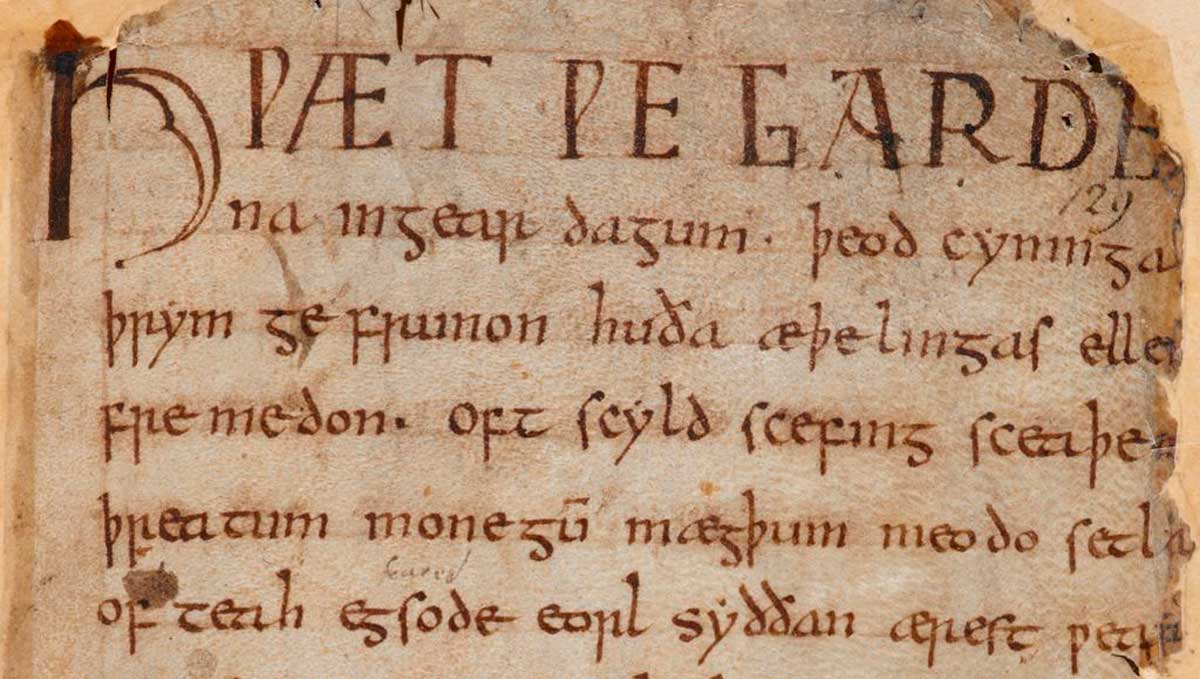 HǷÆT ǷE GARDE
na ingear dagum. þeod cyninga
þrym ge frunon huða æþelingas ellen
fremedon. oft scyld scefing sceaþen
þreatum monegū mægþum meodo setla
of teah egsode eorl syððan ærest ƿear
129